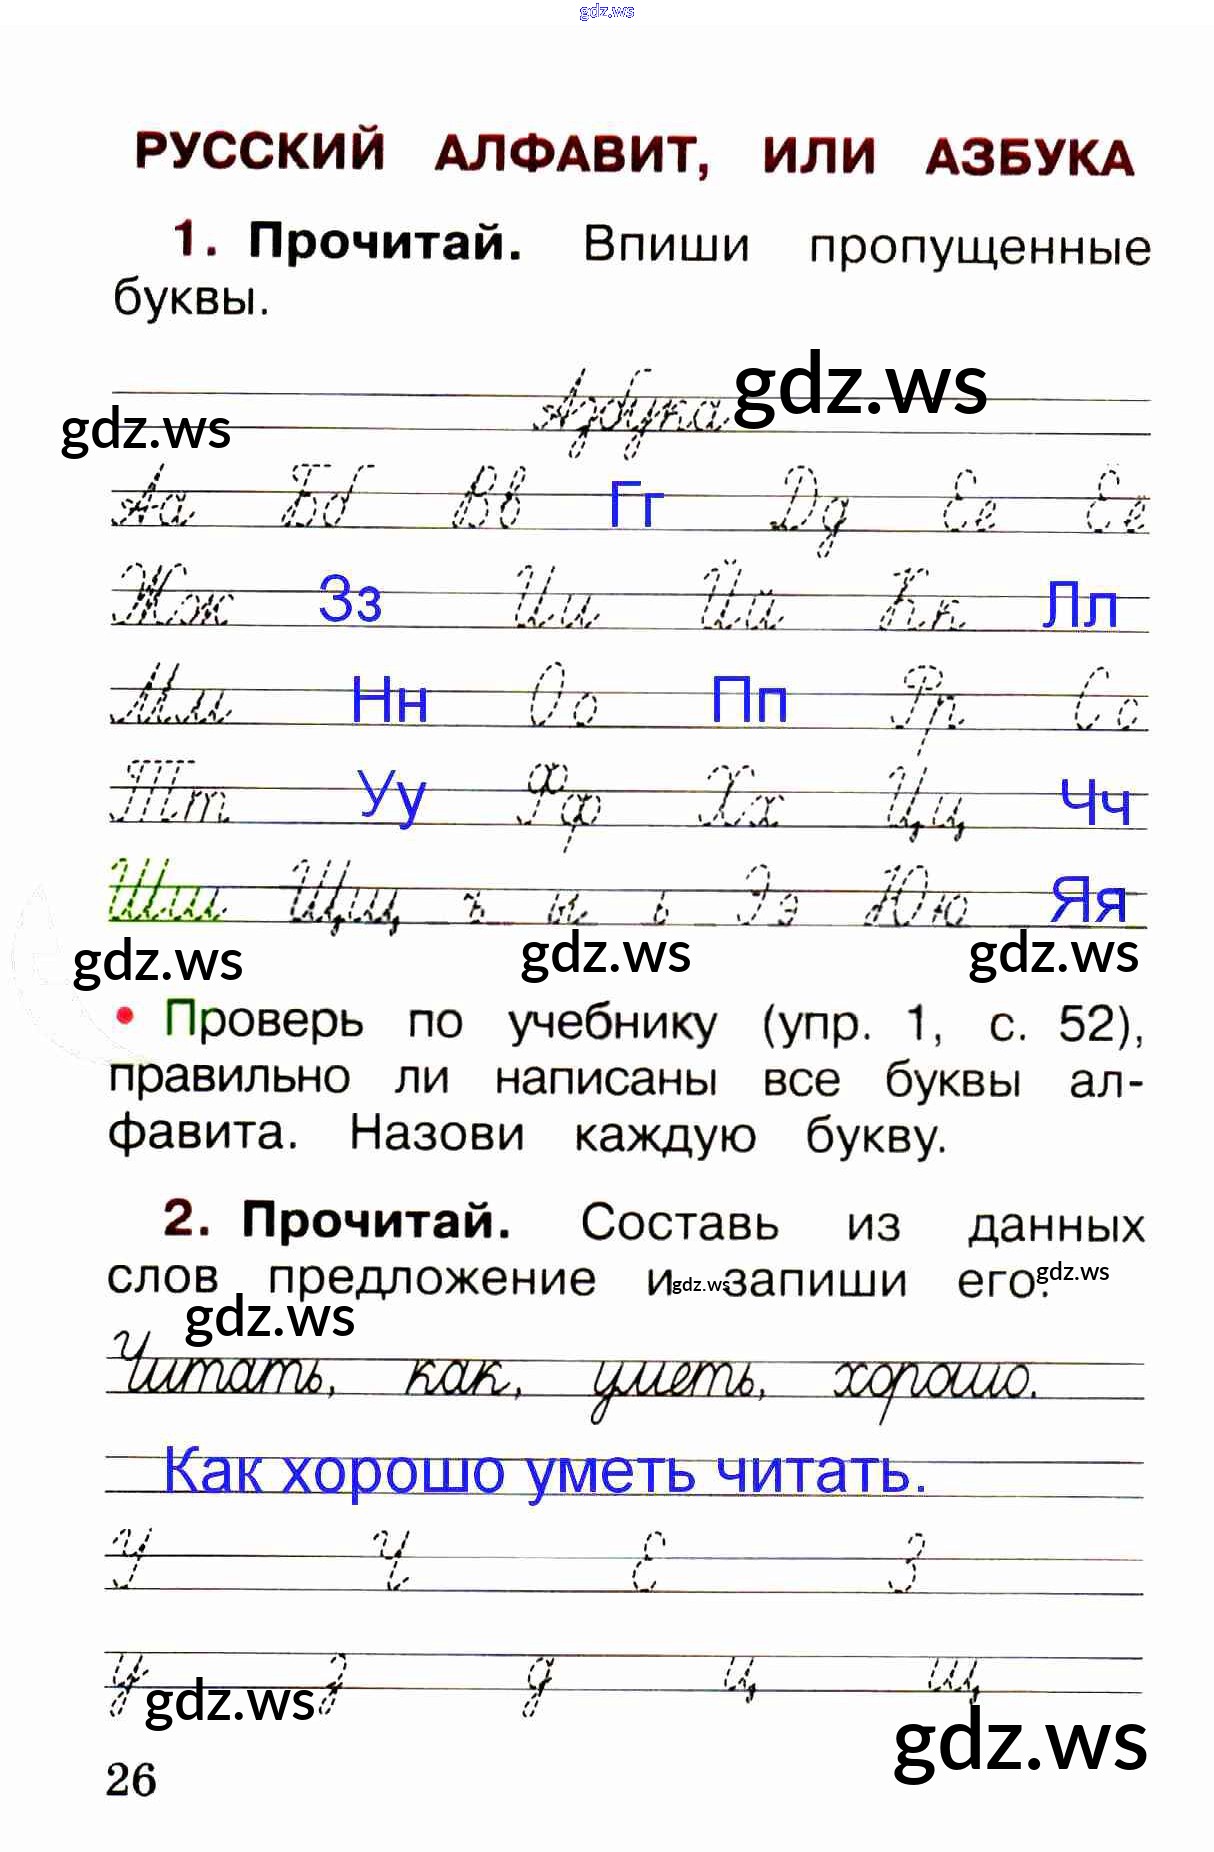 gdz.ws
РУССКИЙ АЛФАВИТ, ИЛИ АЗБУКА
1. Прочитай. Впиши пропущенные
буквы.
Азбука gdz.ws
gdz.ws
Аа Бб Вв Гг Дд Ее Ёё
Жж Зз Ии Йй Кк Лл
Мм Нн Оо Пп Рр Сс
Тт Уу Фф Хх Цц Чч
Шш Щщ ъ ы ь Ээ Юю Яя
gdz.ws gdz.ws gdz.ws
• Проверь по учебнику (упр. 1, с. 52),
правильно ли написаны все буквы ал-
фавита. Назови каждую букву.
2. Прочитай. Составь из данных
слов предложение и gdz.ws запиши его. gdz.ws
gdz.ws
Читать, как, уметь, хорошо.
Как хорошо уметь читать.
У Ч Е З
у з д ц щ
gdz.ws gdz.ws
26